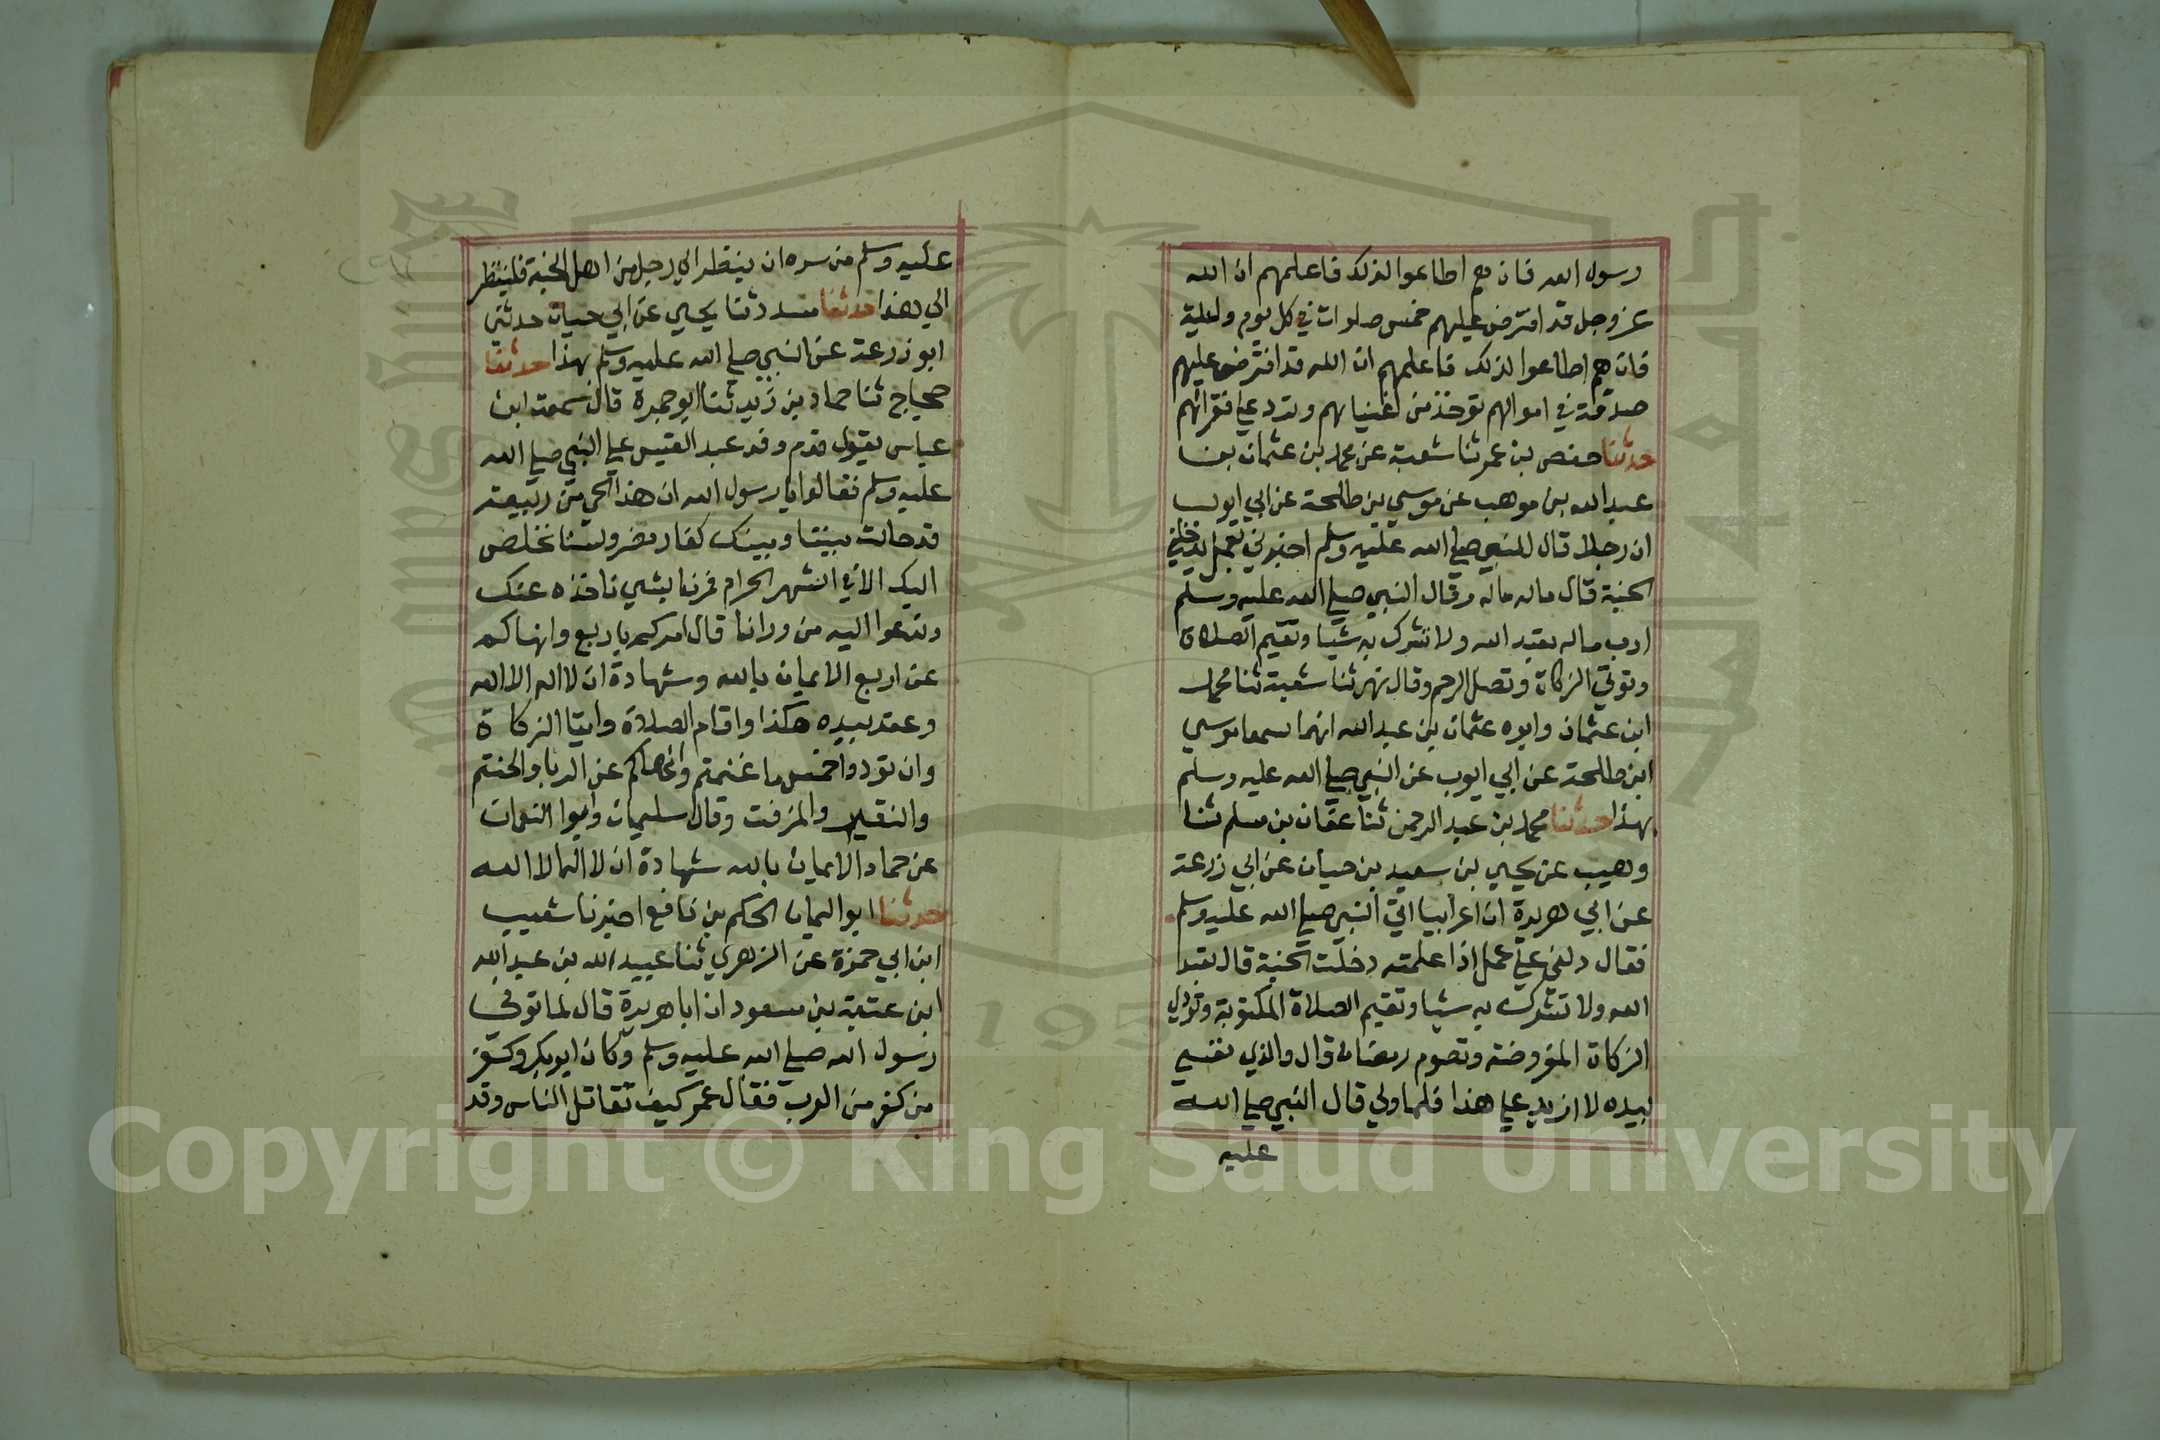 رسول الله فان هم اطاعوا لذلك فاعلمهم ان الله
عز وجل قد افترض عليهم خمس صلوات في كل يوم وليلة
فان هم اطاعوا لذلك فاعلمهم ان الله قد افترض عليهم
صدقة في اموالهم توخذ من اغنيائهم وترد على فقرائهم
حدثنا حفص بن عمر ثنا شعبة عن محمد بن عثمان بن
عبد الله بن موهب عن موسي بن طلحة عن ابي ايوب
ان رجلا قال للنبي صلى الله عليه وسلم اخبرني بعمل يدخلني
الجنة قال ماله ماله وقال النبي صلى الله عليه وسلم
ارب ماله تعبد الله ولا تشرك به شيا وتقيم الصلاة
وتوتي الزكاة وتصل الرحم وقال بهز ثنا شعبة ثنا محمد
ابن عثمان وابوه عثمان بن عبد الله انهما سمعا موسي
ابن طلحة عن ابي ايوب عن النبي صلى الله عليه وسلم
بهذا حدثنا محمد بن عبد الرحمن ثنا عفان بن مسلم ثنا
وهيب عن يحيي بن سعيد بن حيان عن ابي زرعة
عن ابي هريرة ان اعرابيا اتى النبي صلى الله عليه وسلم
فقال دلني على عمل اذا عملته دخلت الجنة قال تعبد
الله ولا تشرك به شيا وتقيم الصلاة المكتوبة وتودي
الزكاة المفروضة وتصوم رمضان قال والذي نفسي
بيده لا ازيد على هذا فلما ولي قال النبي صلى الله
عليه
عليه وسلم من سره ان ينظر الي رجل من اهل الجنة فلينظر
الي هذا حدثنا مسدد ثنا يحيي عن ابي حيان حدثني
ابو زرعة عن النبي صلى الله عليه وسلم بهذا حدثنا
حجاج ثنا حماد بن زيد ثنا ابو جمرة قال سمعت ابن
عباس يقول قدم وفد عبد القيس على النبي صلى الله
عليه وسلم فقالوا يا رسول الله ان هذا الحي من ربيعة
قد حالت بيننا وبينك كفار مضر ولسنا نخلص
اليك الا في الشهر الحرام فمرنا بشي ناخذه عنك
وندعوا اليه من ورانا قال امركم باربع وانهاكم
عن اربع الايمان بالله وشهادة ان لا اله الا الله
وعقد بيده هكذا واقام الصلاة وايتا الزكاة
وان تودوا خمس ما غنمتم وانهاكم عن الدبا والحنتم
والنقير والمزفت وقال سليمان وابوا النعمان
عن حماد الايمان بالله شهادة ان لا اله الا الله
حدثنا ابو اليمان الحكم بن نافع اخبرنا شعيب
ابن ابي حمزة عن الزهري ثنا عبيد الله بن عبد الله
ابن عتبة بن مسعود ان ابا هريرة قال لما توفى
رسول الله صلى الله عليه وسلم وكان ابو بكر وكفر
من كفر من العرب فقال عمر كيف تقاتل الناس وقد
Copyright © King Saud University